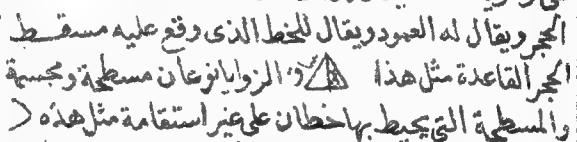 الحجر ويقال له العمود ويقال للخط الذى وقع عليه مسقط
الحجر القاعدة مثل هذا والزوايا نوعان مسطحة ومجسمة
والمسطحة التى يحيط بها خطان على غير استقامة مثل هذه